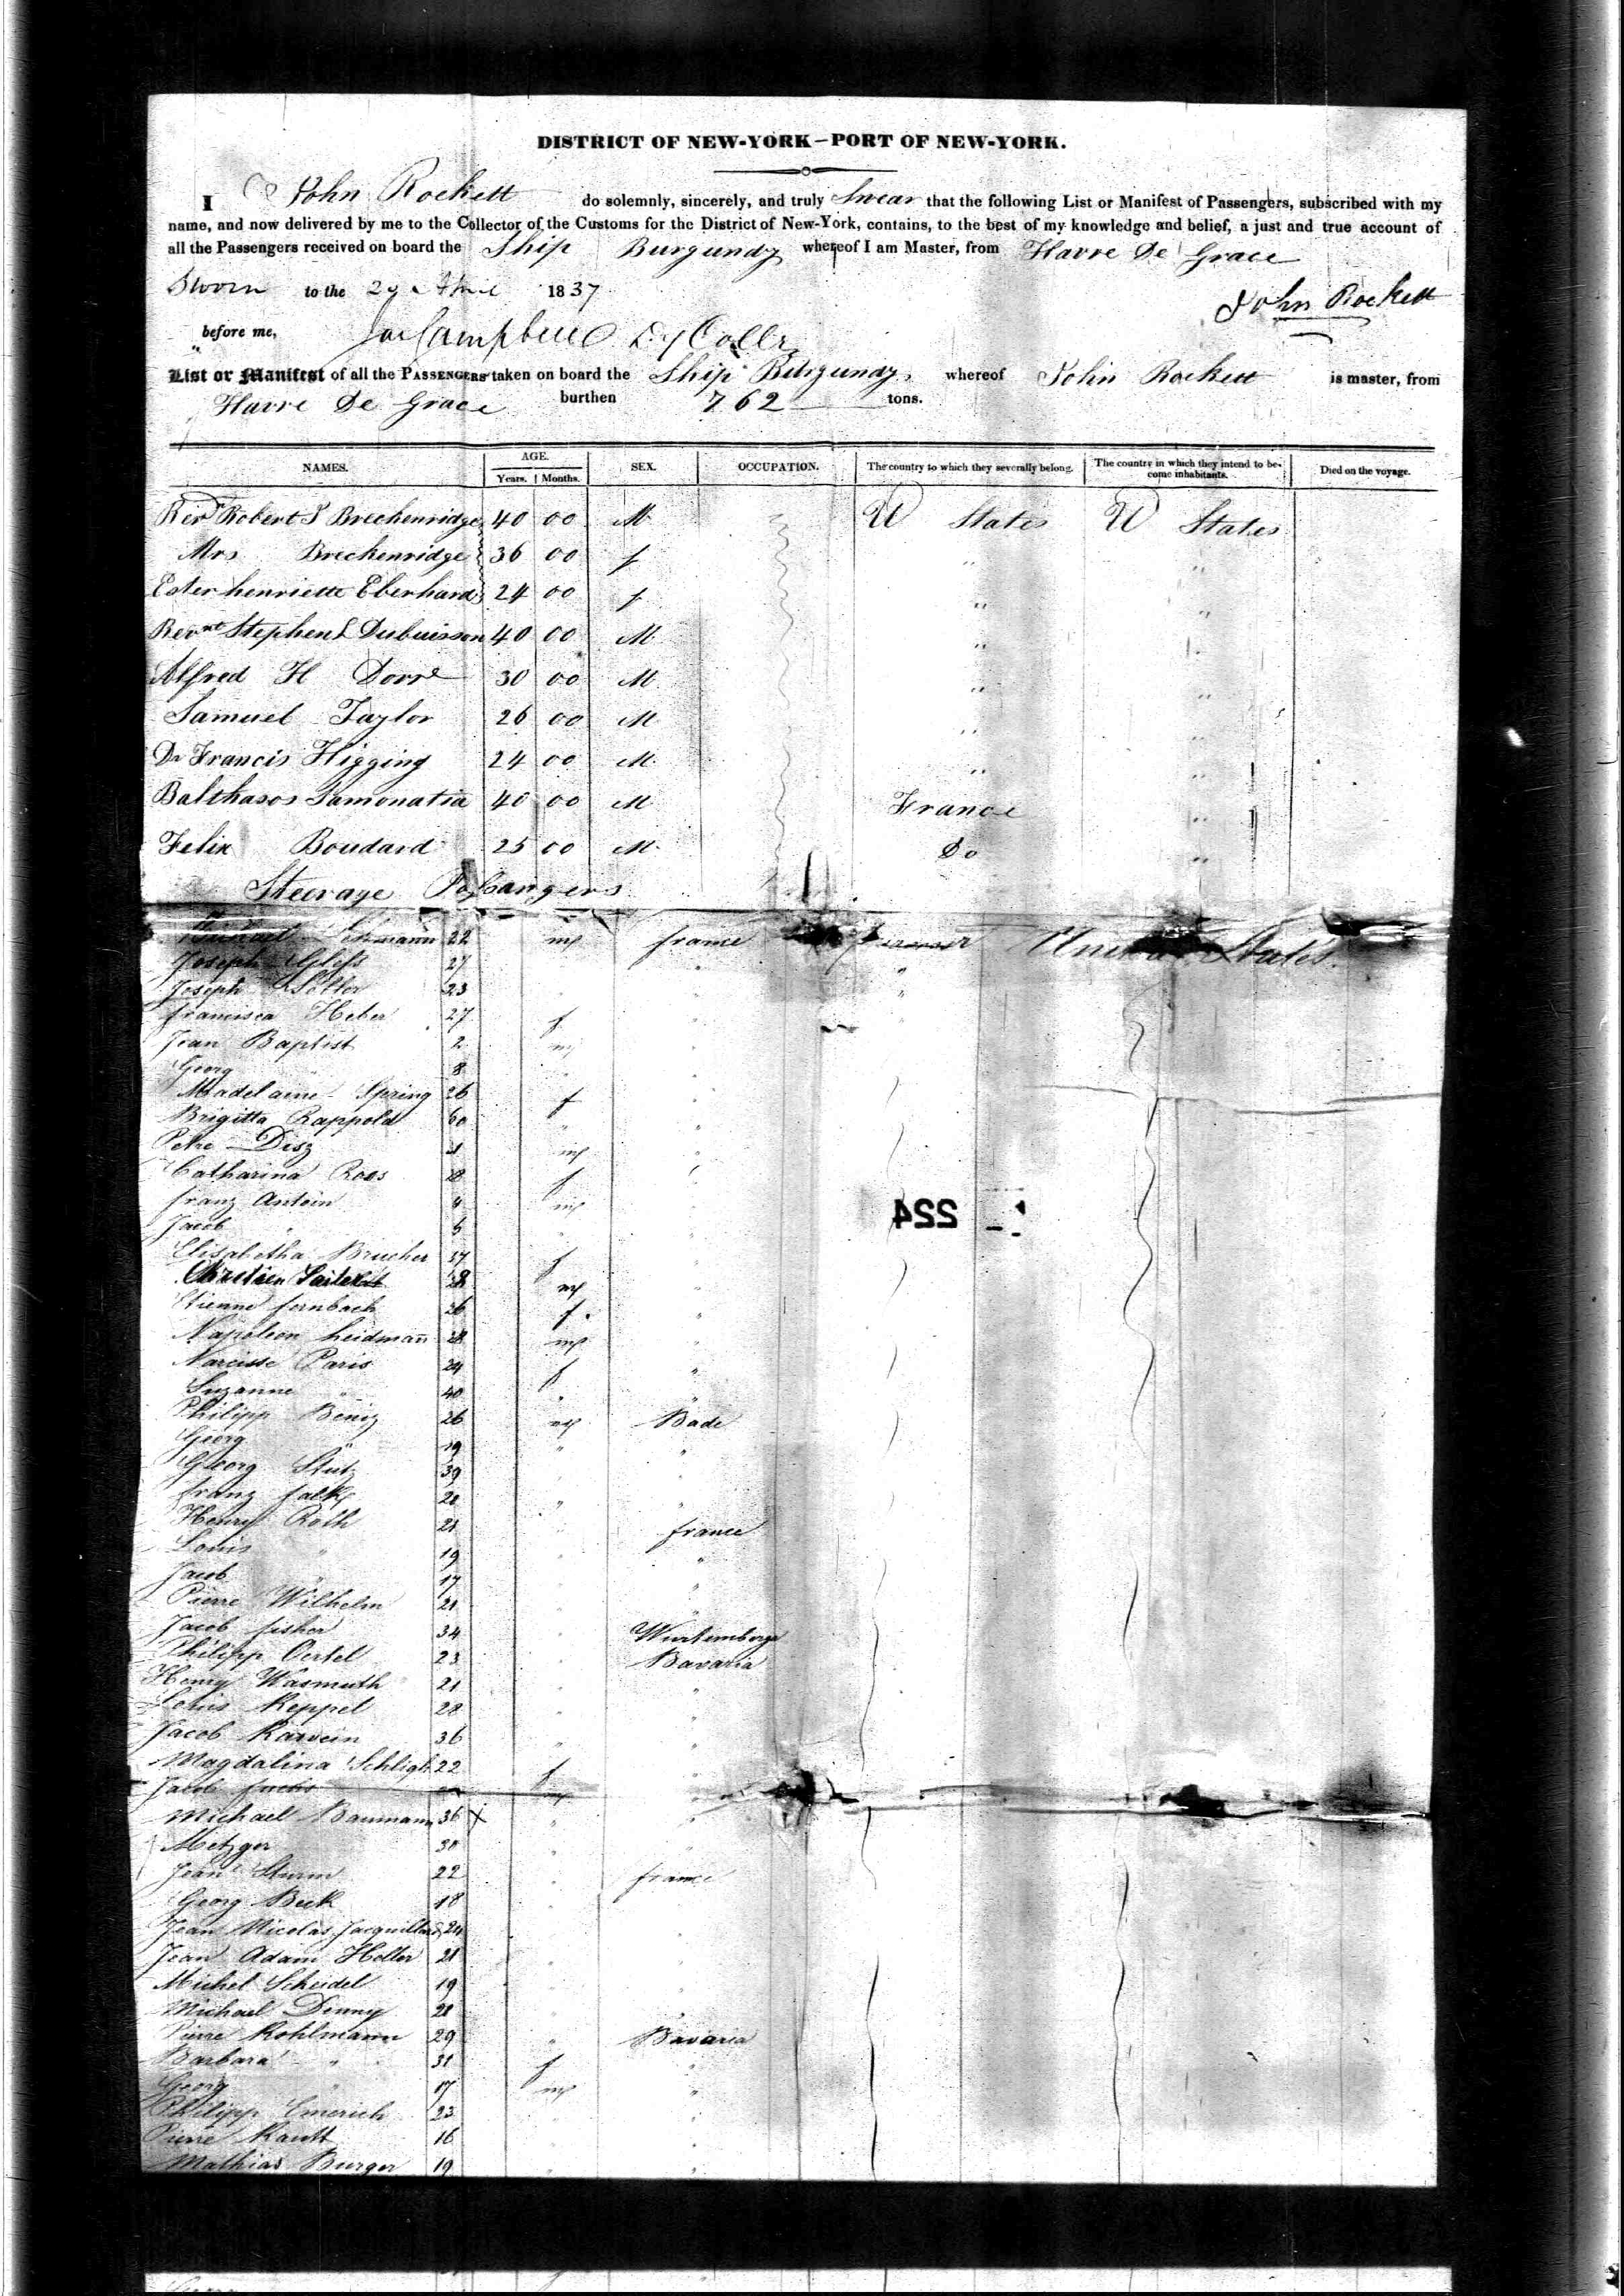 DISTRICT OF NEW-YORK—PORT OF NEW-YORK.
I John Rockett do solemnly, sincerely, and truly Swear that the following List or Manifest of Passengers, subscribed with my
name, and now delivered by me to the Collector of the Customs for the District of New-York, contains, to the best of my knowledge and belief, a just and true account of
all the Passengers received on board the Ship Burgundy whereof I am Master, from Havre De Grace
Sworn to the 29 April 1837 John Rockett
before me, Campbell Dy Collr
List or Manifest of all the PASSENGERS taken on board the Ship Burgundy, whereof John Rockett is master, from
Havre De Grace burthen 762 tons.
NAMES. AGE. Years. Months. SEX. OCCUPATION. The country to which they severally belong. The country in which they intend to become inhabitants. Died on the voyage.
Revd Robert J Breckenridge 40 00 M U States U States
Mrs Breckenridge 36 00 f " "
Ester henriette Eberhard 24 00 f " "
Revnt Stephen L Dubuisson 40 00 M " "
Alfred H Dorr 30 00 M " "
Samuel Taylor 26 00 M " "
Dr Francis Higging 24 00 M " "
Balthasos Samonatia 40 00 M France "
Felix Boudard 25 00 M Do "
Steerage Passangers
Lehmann 22 m france United States
Joseph 27 " "
Joseph 23
francisca Heber 27 f
Jean Baptist 2 m
Georg 8
Madelaine Spring 26 f
Brigitta Rappold 60 "
Petre Disz m
Catharina Roos 28 f
franz Antoin 4 m
Jacob " 6
Elisabetha Brucher 37 f
Chretien 28 m
Etienne fernbach 26 f
Napoleon heidmann 28 m
Narcisse Paris 24 f
Suzanne " 40 "
Philipp Beniz 26 m Bade
Georg " 19 " "
Georg Stutz 39
franz falk 20 "
Henry Roth 21 france
Louis " 19 "
Jacob " 17 "
Pierre Wilhelm 21 "
Jacob fisher 34 Wurtemberge
Philipp Oertel 23 Bavaria
Henry Wasmuth 21 "
Louis Keppel 28 "
Jacob Karvein 36 "
Magdalina Schligh 22 f
Jacob fuchs m
Michael Baumann 36 X "
Metzger 30
Jean Sturm 22 france
Georg Beck 18
Jean Nicolas 24
Jean Adam Holler 21
Michel Scheidel 19
Michael Denny 28
Pierre Kohlmann 29 " Bavaria
Barbara " 31 f "
Georg " 17 m "
Philipp Emerich 23
Pierre 16
Mathias Burger 19
224